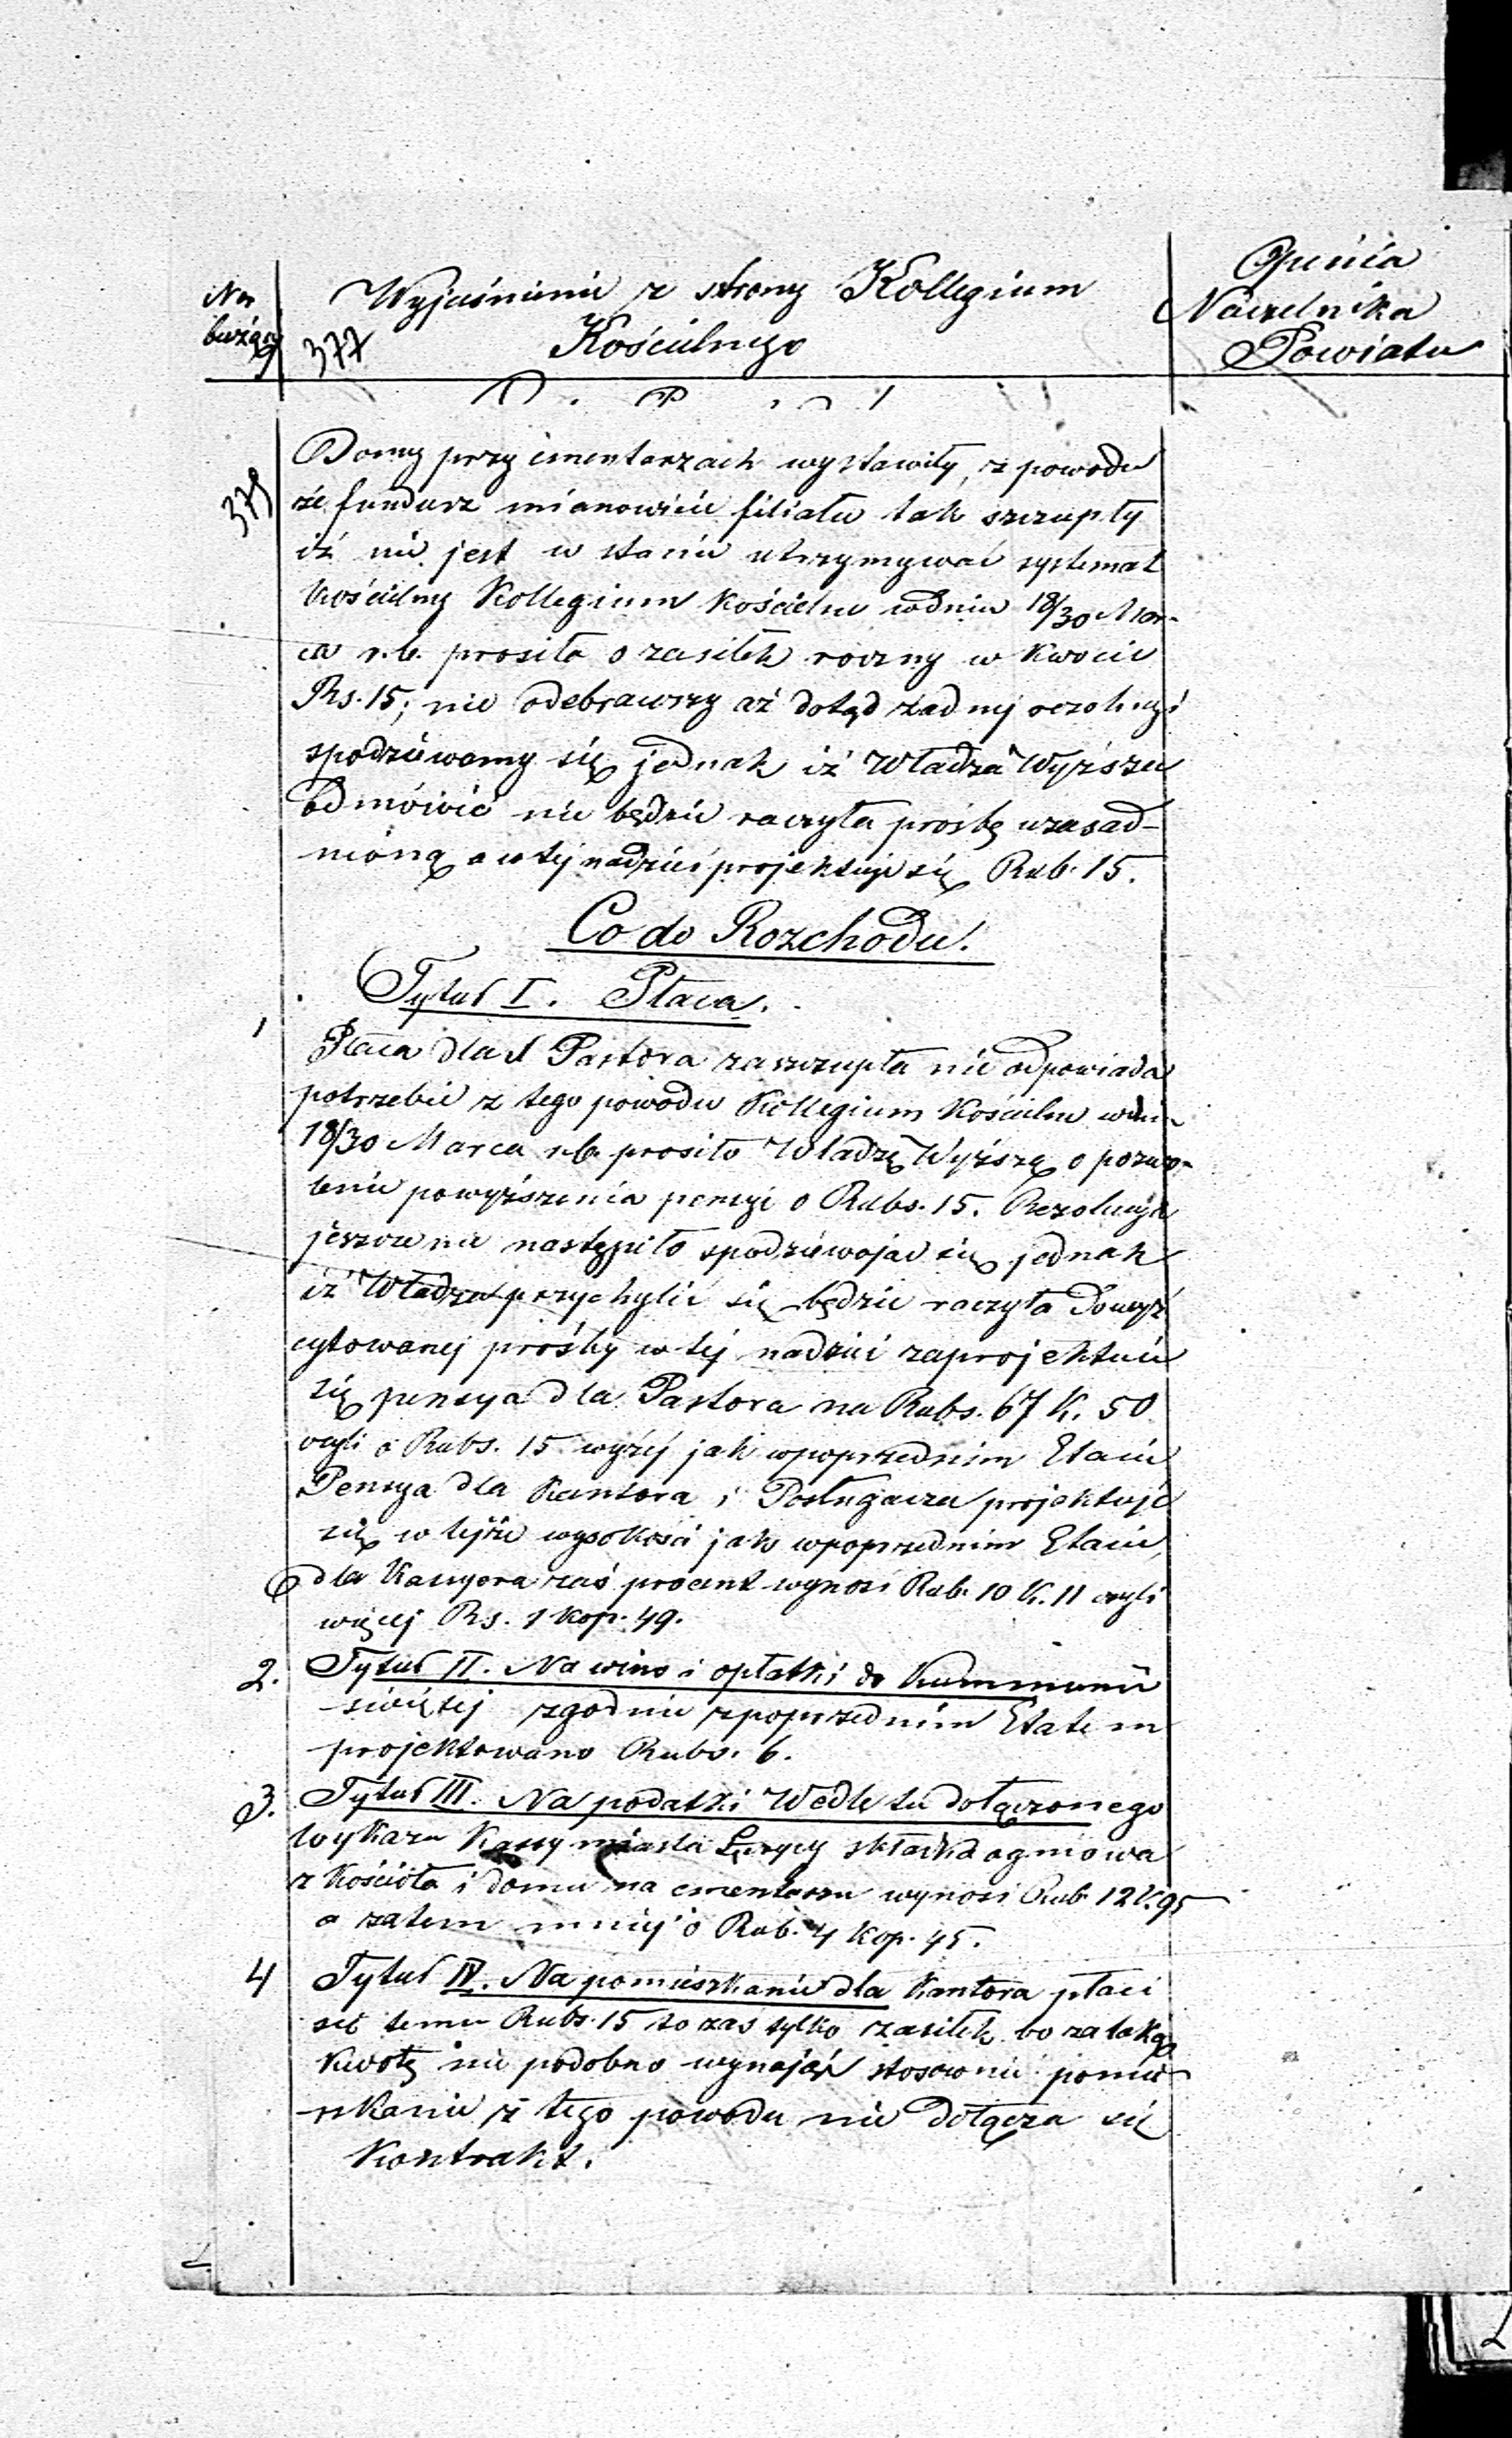 Nr
bieżący
Wyjaśnienie z strony Kollegium
Kościelnego
377
Opinia
Naczelnika
Powiatu
Domy przy cmentarzach wystawiły, z powodu
że fundusz mianowicie filiału tak szczupły
iż nie jest w stanie utrzymywać systemat
kościelny Kollegium Kościelne w dniu 18/30 Mar-
ca r.b. prosiło o zasiłek roczny w kwocie
Rs. 15; nie odebrawszy aż dotąd żadnej rezolucyi
spodziewamy się jednak iż Władza Wyższa
odmówić nie będzie raczyła prośbę uzasad-
nioną a w tej nadziei projektuje się Rub. 15.
Co do Rozchodu.
Tytuł I. Płaca.
1
Płaca dla Pastora zaszczupła nie odpowiada
potrzebie z tego powodu Kollegium Kościelne w dniu
18/30 Marca r.b. prosiło Władzę Wyższę o pozwo-
lenie powyższenia pensyi o Rubs. 15. Rezolucyja
jeszcze nie nastąpiło spodziewając się jednak
iż Władza przychylić się będzie raczyła do wyż
cytowanej prośby w tej nadziei zaprojektuie
się pensya dla Pastora na Rubs. 67 K. 50
czyli o Rubs. 15 wyżej jak w poprzednim Etacie
Pensya dla Kantora i Posługacza projektuje
się w tejże wysokości jak w poprzednim Etacie,
dla Kassyera zaś procent wynosi Rub. 10 K. 11 czyli
więcej Rs. 1 kop. 49.
2. Tytuł II. Na wino i opłatki do Kommunii
świętej zgodnie z poprzednim Etatem
projektowano Rubs. 6.
3. Tytuł III. Na podatki Wedle tu dołączonego
wykazu Kassy miasta Łęczycy składka ogniowa
z Kościoła i domu na cmentarzu wynosi Rub 12 K. 95
a zatem mniej o Rub. 4 kop. 45.
4 Tytuł IV. Na pomieszkanie dla Kantora płaci
się temu Rubs. 15 to zaś tylko zasiłek bo za taką
kwotę nie podobno wynająć stosownie pomie-
szkanie z tego powodu nie dołącza się
Kontrakt.